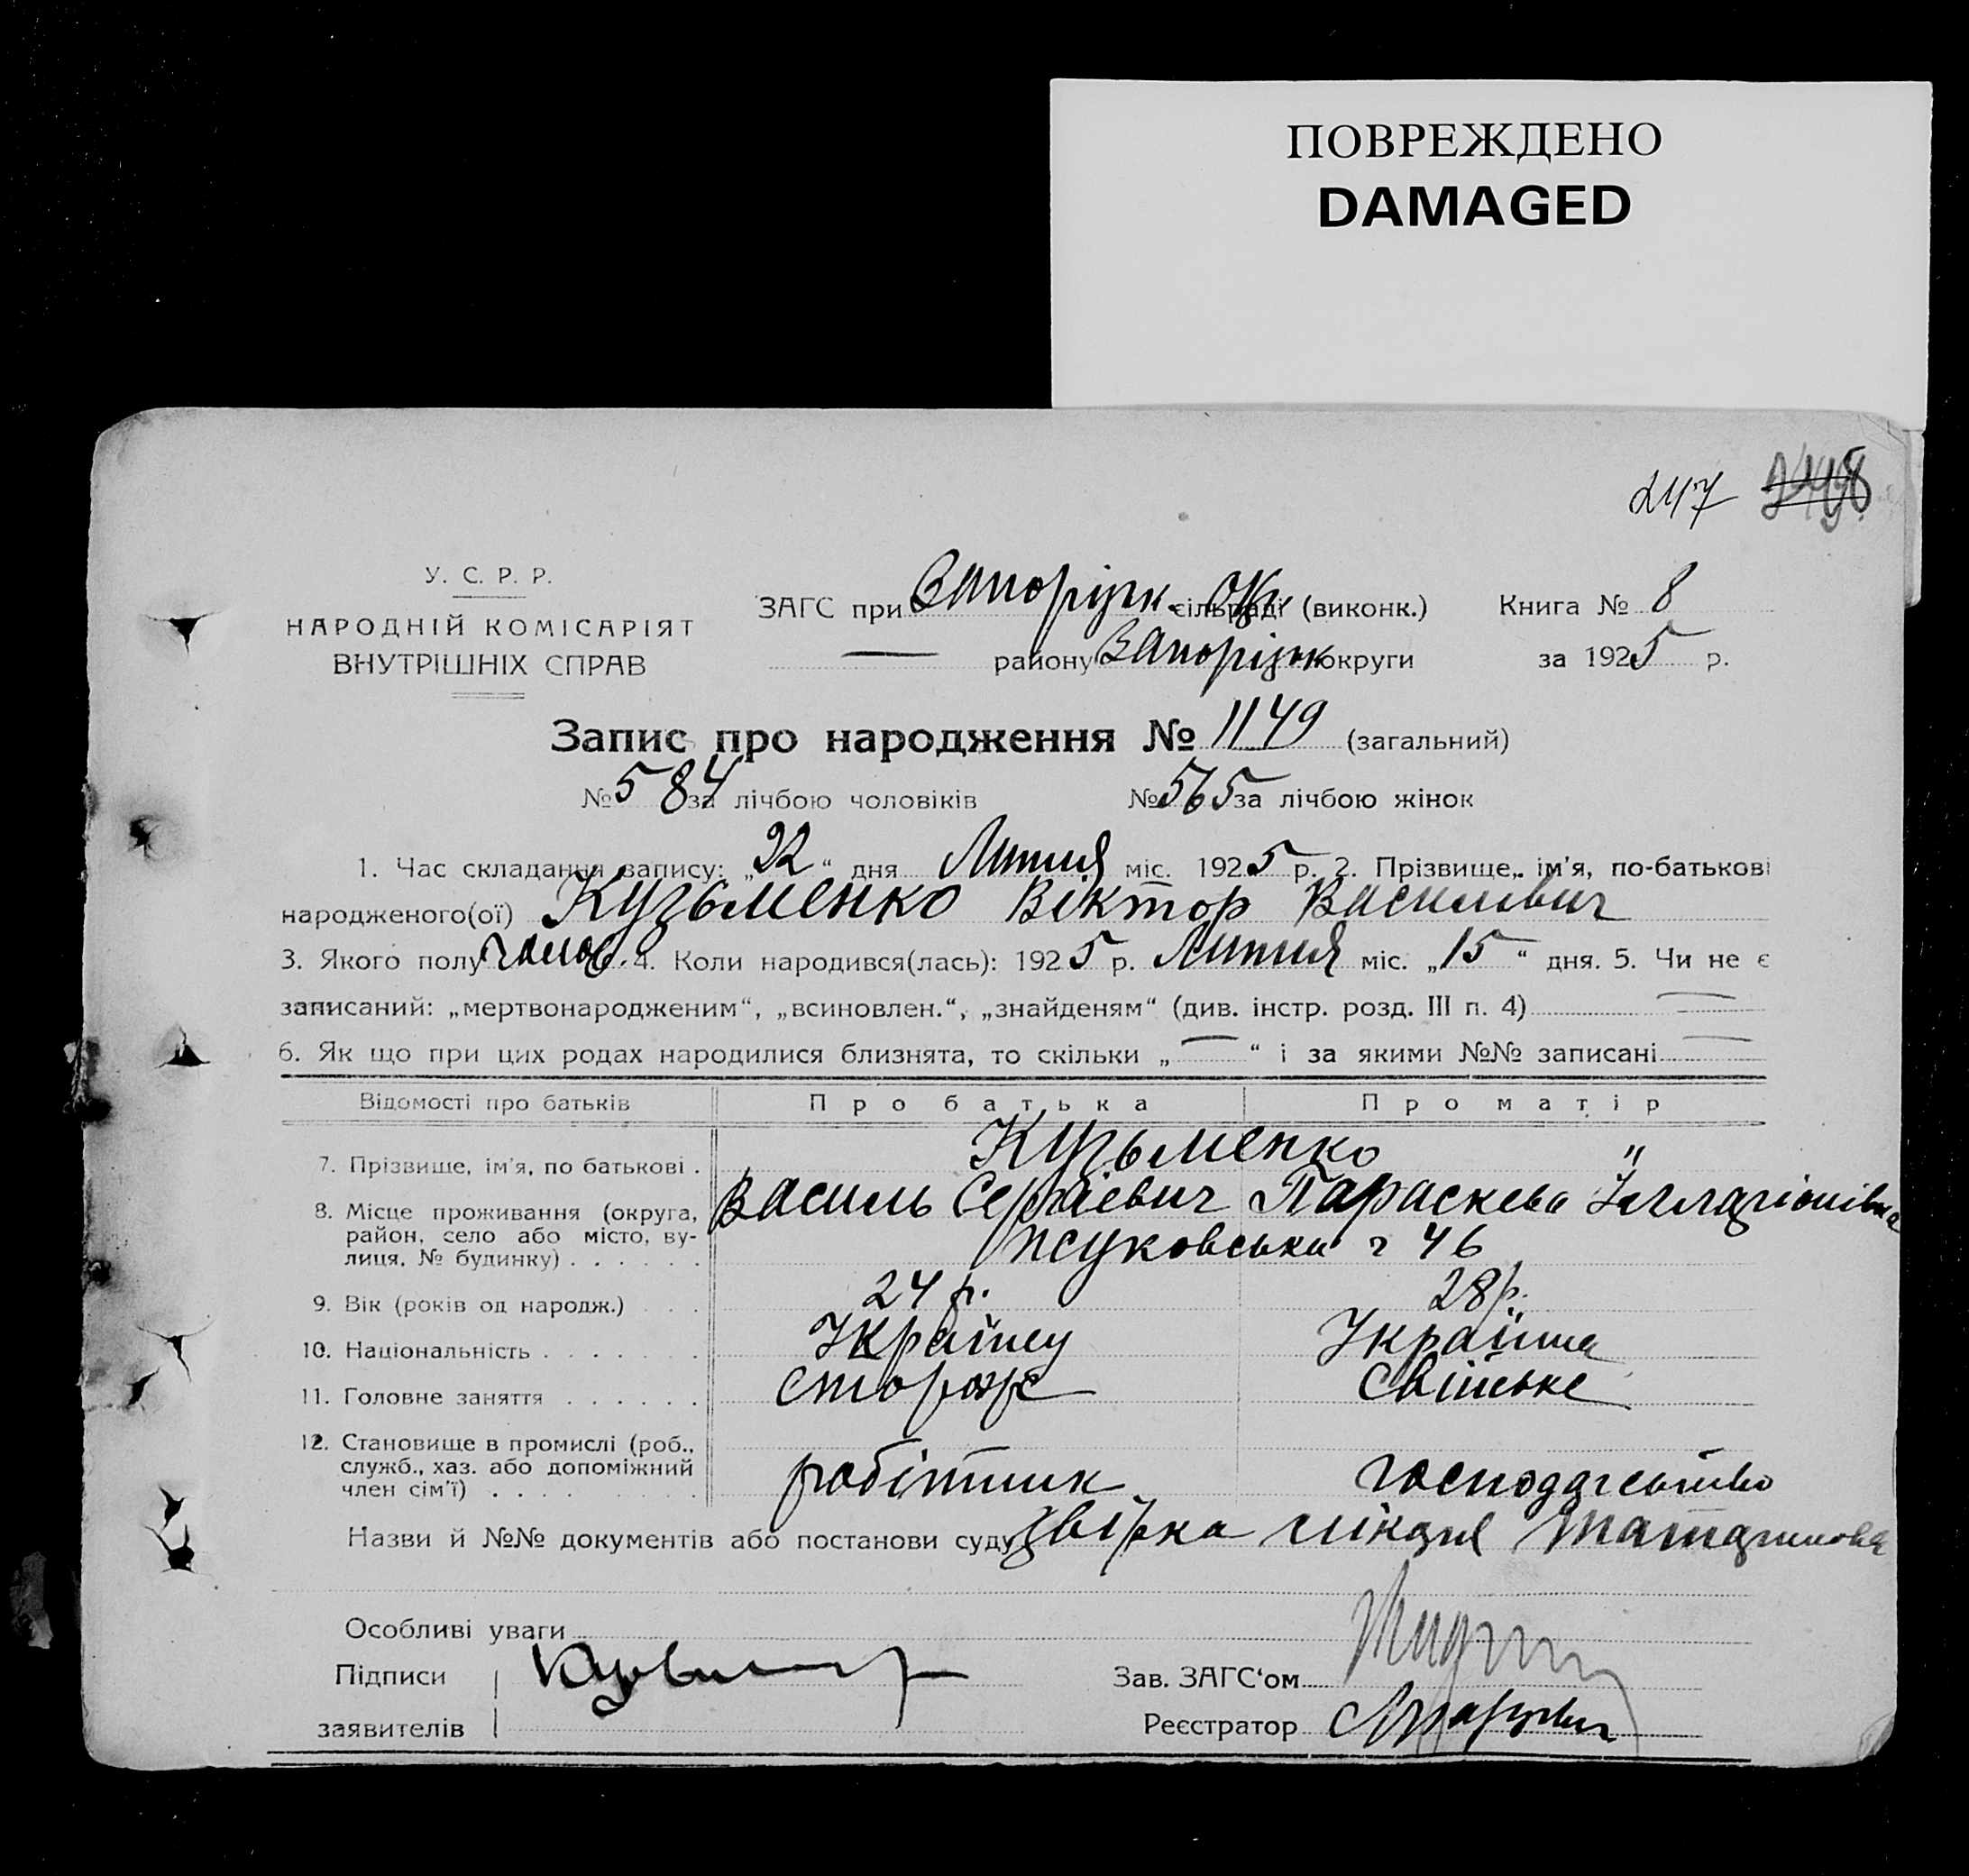 ПОВРЕЖДЕНО
DAMAGED
247 248
У. С. Р. Р.
НАРОДНІЙ КОМІСАРІЯТ
ВНУТРІШНІХ СПРАВ
ЗАГС при Запорізьк. Окр. сільраді (виконк.) Книга № 8
— району Запорізьк округи за 1925 р.
Запис про народження № 1149 (загальний)
№ 584 за лічбою чоловіків № 565 за лічбою жінок
1. Час складання запису: „22“ дня Липня міс. 1925 р. 2. Прізвище, ім'я, по-батькові
народженого(ої) Кузьменко Віктор Василивич
3. Якого полу чолов. 4. Коли народився(лась): 1925 р. Липня міс. „15“ дня. 5. Чи не є
записаний: „мертвонародженим“, „всиновлен.“, „знайденям“ (див. інстр. розд. III п. 4) —
6. Як що при цих родах народилися близнята, то скільки „—“ і за якими №№ записані —
Відомості про батьків Про батька Про матір
7. Прізвище, ім'я, по батькові . Кузьменко "
Василь Сергієвич Параскева
8. Місце проживання (округа,
район, село або місто, ву-
лиця, № будинку) . . . . . . Жуковська ч 46
9. Вік (років од народж.) . . . 24 р. 28 р.
10. Національність . . . . . . . Українец Українка
11. Головне заняття . . . . . . сторож Свійське
12. Становище в промислі (роб.,
служб., хаз. або допоміжний
член сім'ї) . . . . робітник господарсьтво
Назви й №№ документів або постанови суду
Особливі уваги
Підписи
заявителів
Зав. ЗАГС'ом
Реєстратор